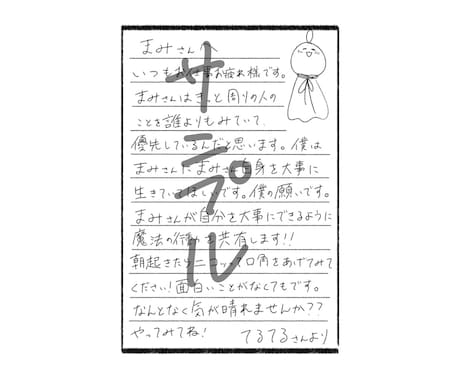 まみさんへ
いつもお仕事お疲れ様です。
まみさんはきっと周りの人の
ことを誰よりもみていて、
優先しているんだと思います。僕は
まみさんにまみさん自身を大事に
生きていてほしいです。僕の願いです。
まみさんが自分を大事にできるように
魔法の行動を共有します!!
朝起きたらニコッって口角をあげてみて
ください!面白いことがなくてもです。
なんとなく気が晴れませんか??
やってみてね!
てるてるさんより
サンプル